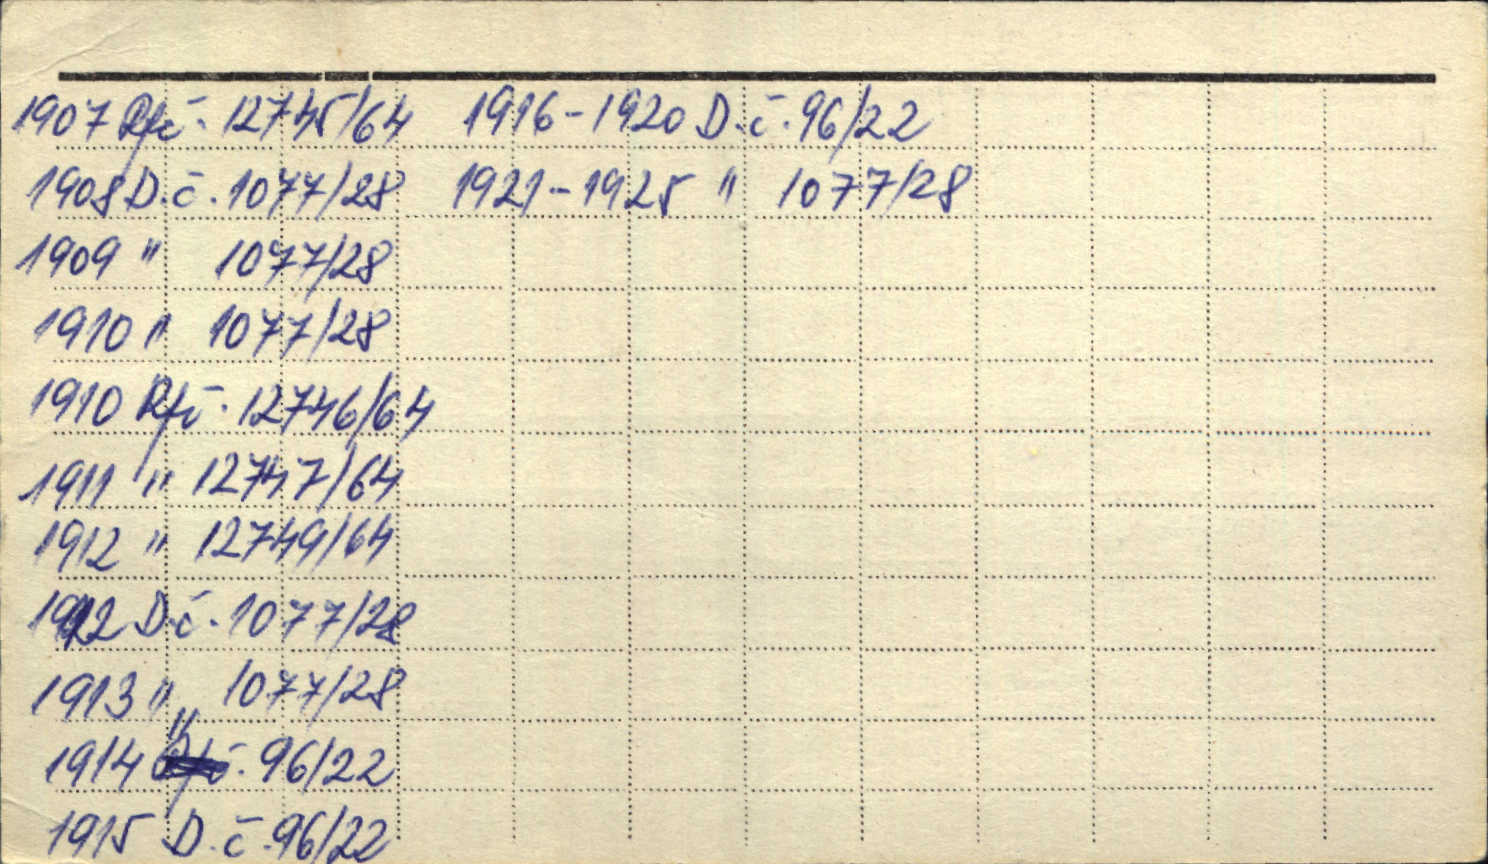 1907 Rfč. 12745/64
1908 D.č. 1077/28
1909 " 1077/28
1910 " 1077/28
1910 Rfč. 12746/64
1911 " 12747/64
1912 " 12749/64
1912 D.č. 1077/28
1913 " 1077/28
1914 " 96/22
1915 D.č. 96/22
1916-1920 D.č. 96/22
1921-1925 " 1077/28